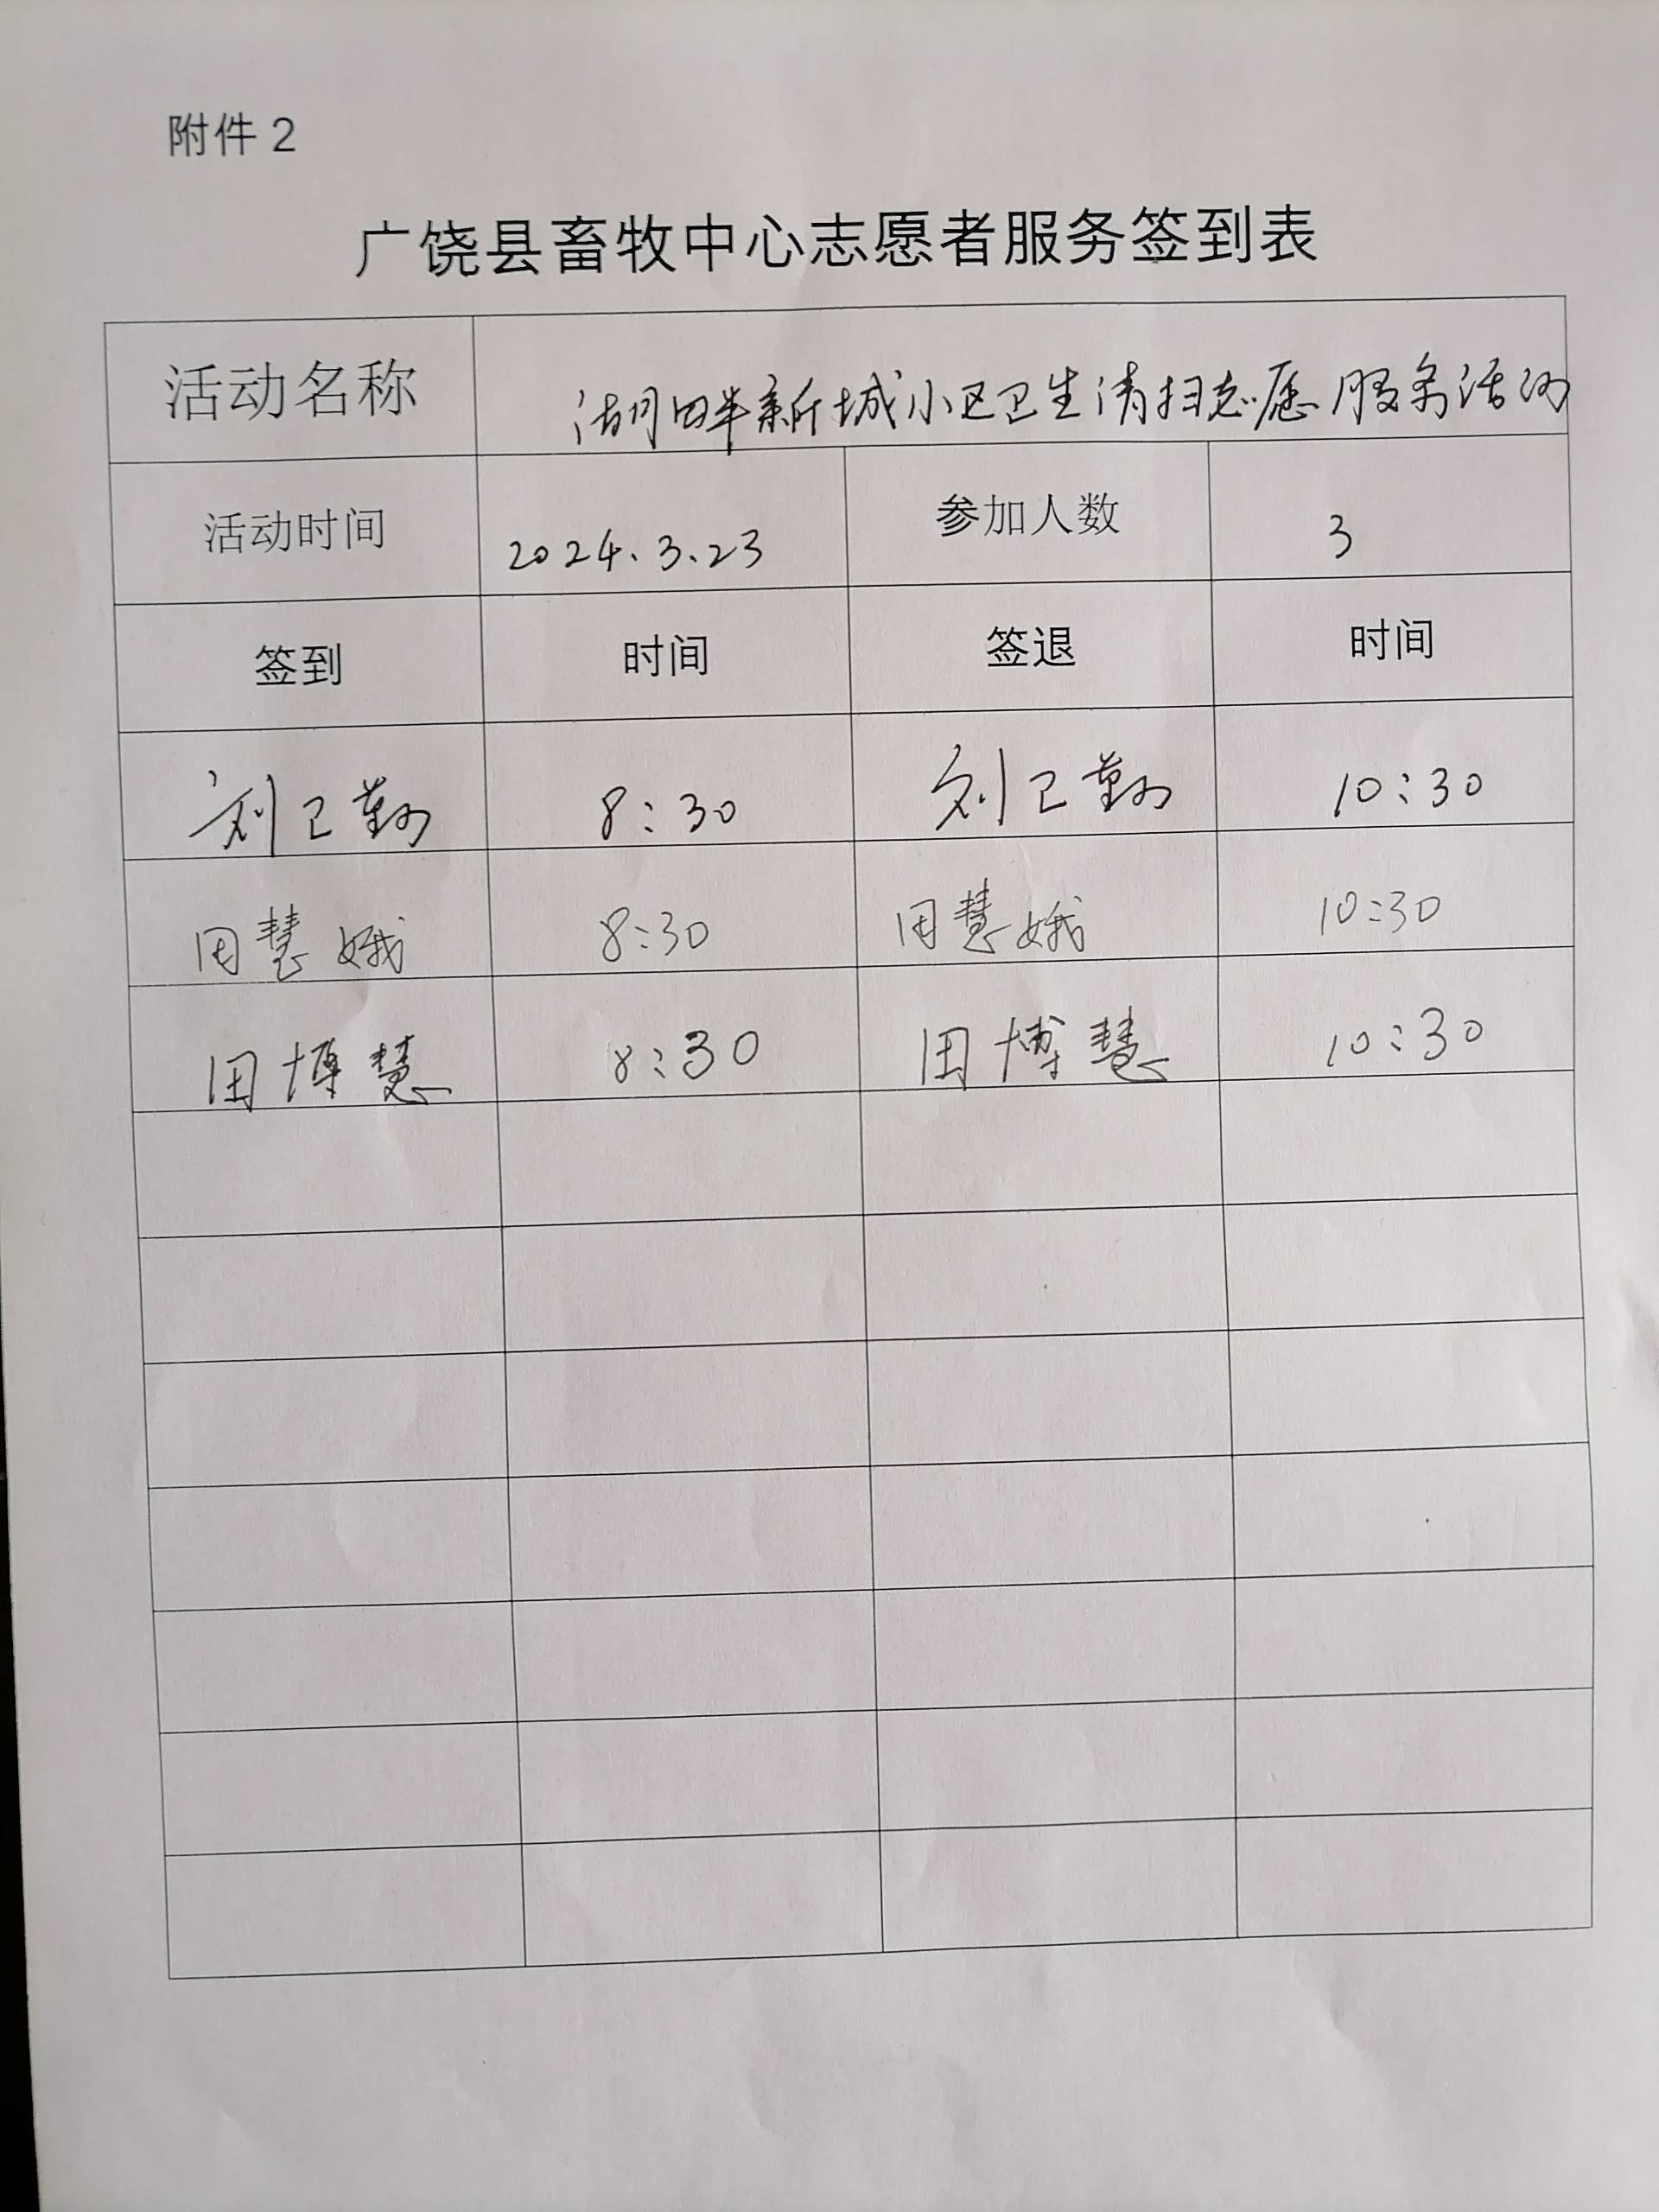 附件2
广饶县畜牧中心志愿者服务签到表
活动名称 湖畔新城小区卫生清扫志愿服务活动
活动时间 2024.3.23 参加人数 3
签到 时间 签退 时间
刘卫勤 8:30 刘卫勤 10:30
田慧娥 8:30 田慧娥 10:30
田博慧 8:30 田博慧 10:30